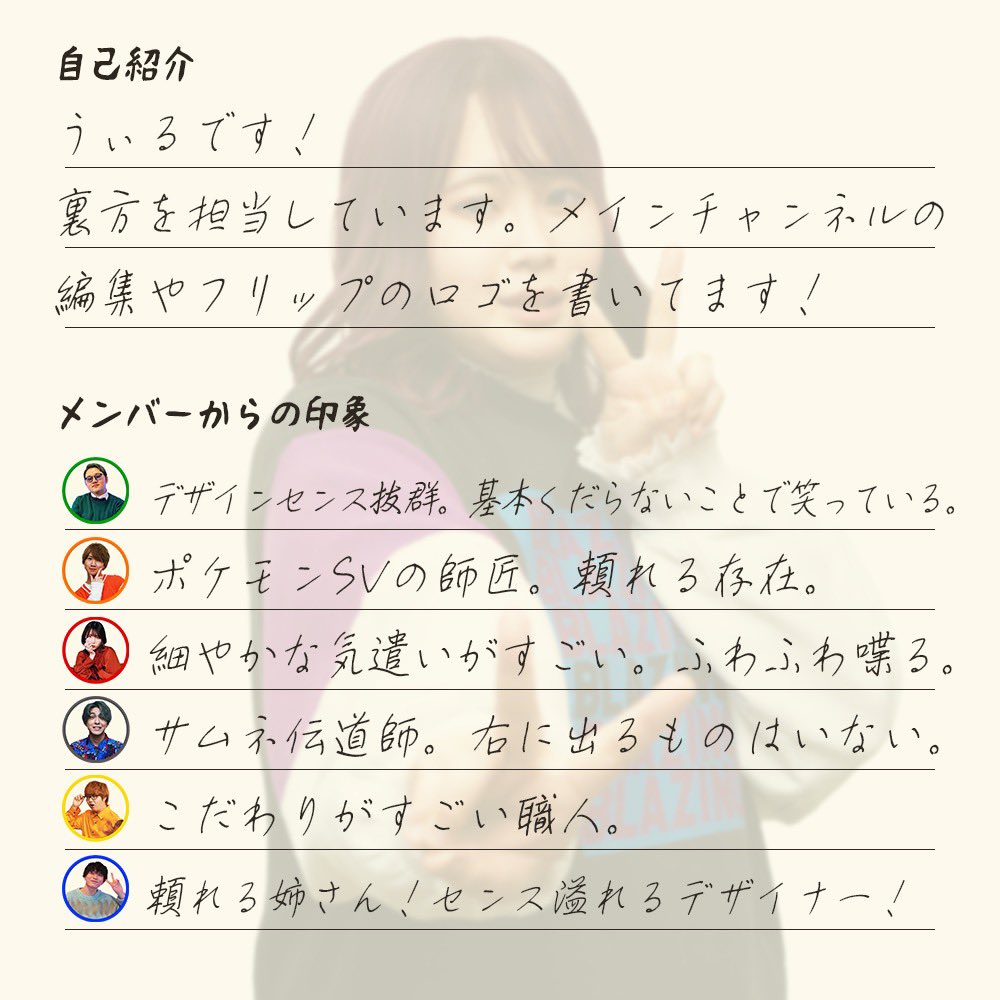 自己紹介
うぃるです！
裏方を担当しています。メインチャンネルの
編集やフリップのロゴを書いてます！
メンバーからの印象
デザインセンス抜群。基本くだらないことで笑っている。
ポケモンSVの師匠。頼れる存在。
細やかな気遣いがすごい。ふわふわ喋る。
サムネ伝道師。右に出るものはいない。
こだわりがすごい職人。
頼れる姉さん！センス溢れるデザイナー！
BLAZIN
BLAZIN